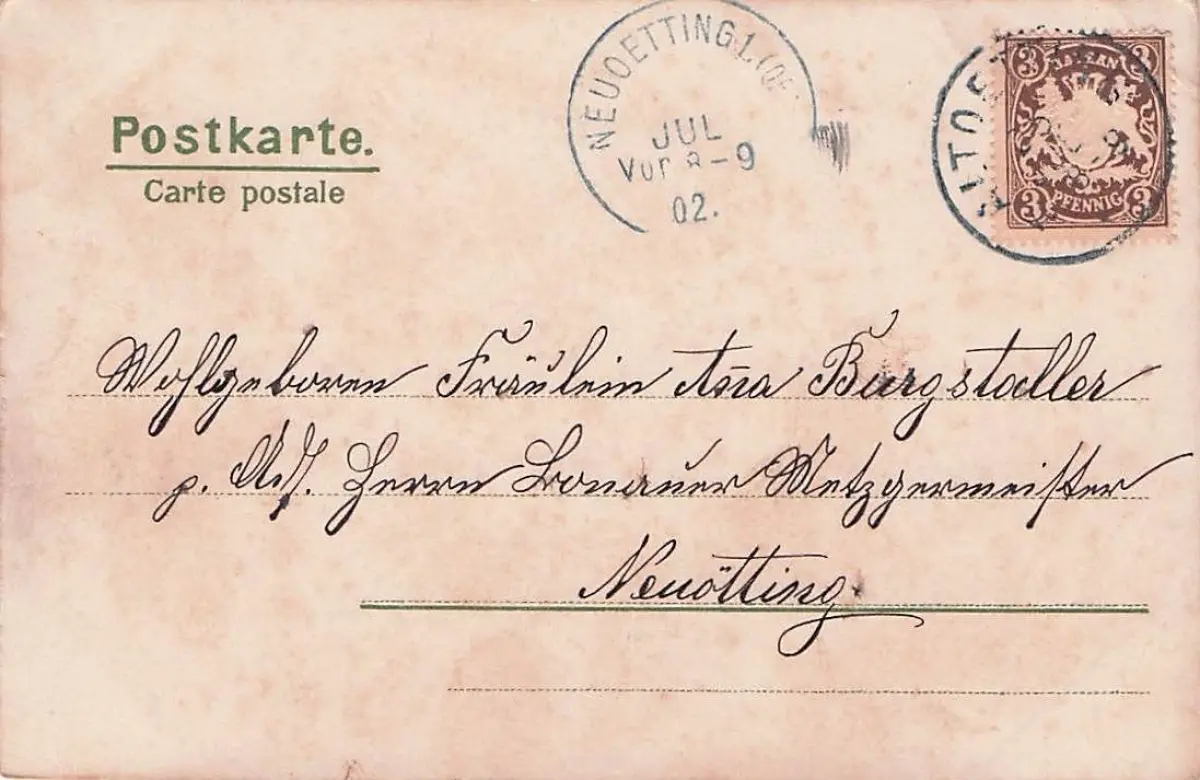 Postkarte.
Carte postale
NEUOETTING 1. (OB
JUL
Vor 8-9
02.
3 3
BAYERN
PFENNIG
3 3
Wohlgeboren Fräulein Aña Burgstaller
p. Ad. Herrn Bonauer Metzgermeister
Neuötting.